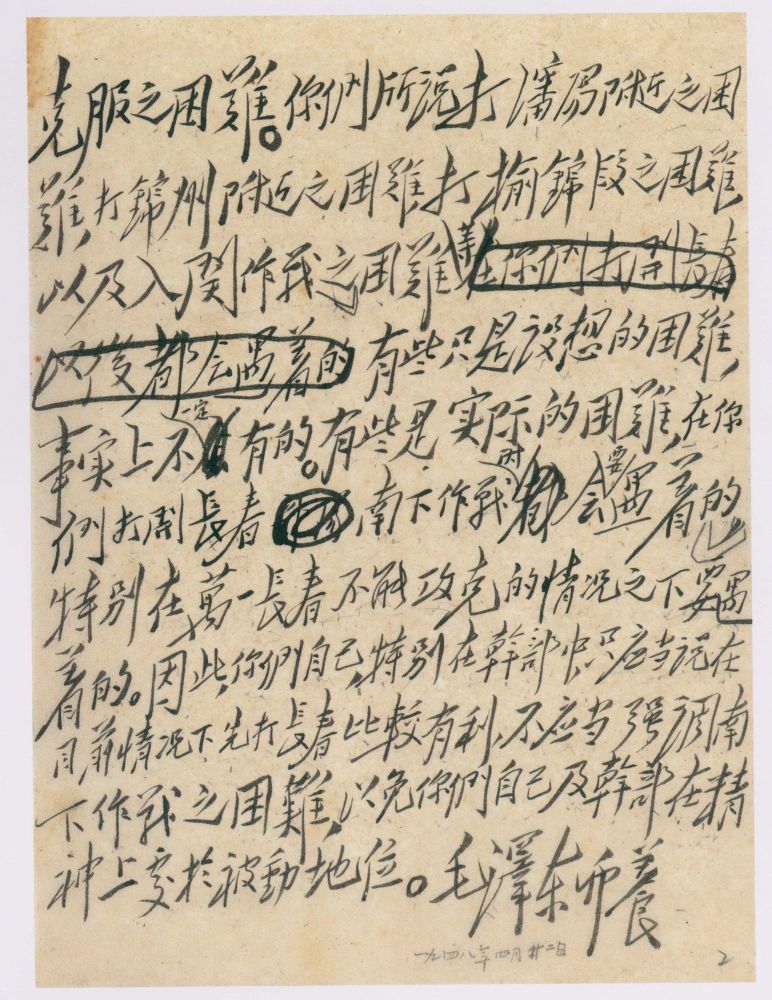 克服之困難。你們所说打瀋陽附近之困
難，打錦州附近之困難，打榆錦段之困難，
以及入関作战之困難等，在你們打開長春
以後都会遇着的 有些只是設想的困難，
事实上不一定有的。有些是实际的困難，在你
們打開長春南下作戰时会要遇着的
特别在萬一長春不能攻克的情况之下要遇
着的。因此，你們自己，特别在幹部中，只应当说在
目前情况下先打長春比較有利，不应当强調南
下作战之困難，以免你們自己及幹部在精
神上处於被動地位。毛澤东卯養
一九四八年四月廿二日 2